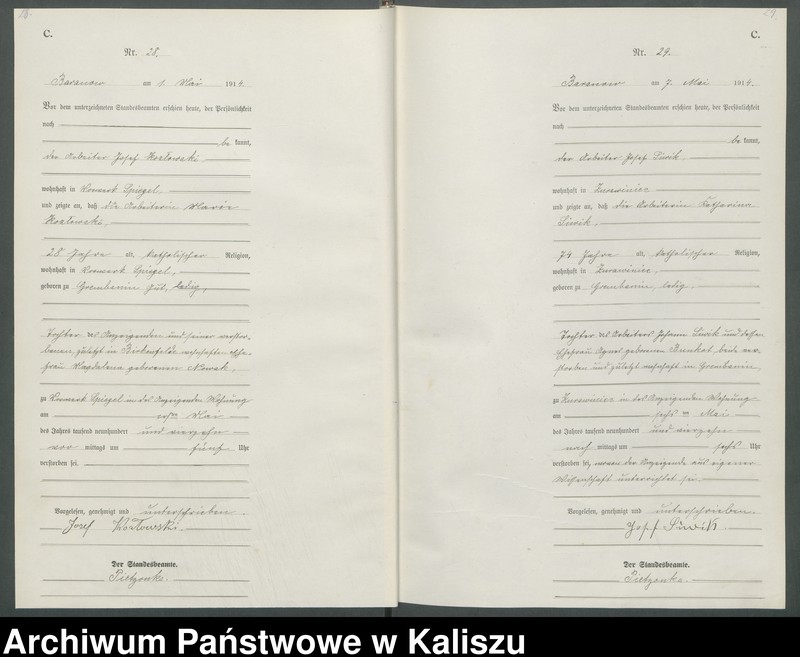 C.
Nr. 28.
Baranow am 1. Mai 1914.
Vor dem unterzeichneten Standesbeamten erschien heute, der Persönlichkeit
nach
be kannt,
der Arbeiter Josef Kozlowski
wohnhaft in Vorwerk Spiegel
und zeigte an, daß die Arbeiterin Marie
Kozlowski,
28 Jahre alt, katholischer Religion,
wohnhaft in Vorwerk Spiegel,
geboren zu Grembanin Gut, ledig,
Tochter des Anzeigenden und seiner verstor-
benen, zuletzt in Birkenfelde wohnhaften Ehe-
frau Magdalena geborenen Nowak,
zu Vorwerk Spiegel in des Anzeigenden Wohnung
am ersten Mai
des Jahres tausend neunhundert und vierzehn
vor mittags um fünf Uhr
verstorben sei.
Vorgelesen, genehmigt und unterschrieben.
Jozef Kozłowski.
Der Standesbeamte.
Pietzonka.
29
C.
Nr. 29.
Baranow am 7. Mai 1914.
Vor dem unterzeichneten Standesbeamten erschien heute, der Persönlichkeit
nach
be kannt,
der Arbeiter Josef Siwik
wohnhaft in Zurawiniec
und zeigte an, daß die Arbeiterin Katharina
Siwik,
74 Jahre alt, katholischer Religion,
wohnhaft in Zurawiniec,
geboren zu Grembanin, ledig.
Tochter des Arbeiters Johann Siwik und dessen
Ehefrau Agnes geborene Bunkat, beide ver-
storben und zuletzt wohnhaft in Grembanin,
zu Zurawiniec in des Anzeigenden Wohnung
am sechs ten Mai
des Jahres tausend neunhundert und vierzehn
nach mittags um sechs Uhr
verstorben sei, wovon der Anzeigende aus eigener
Wissenschaft unterrichtet sei.
Vorgelesen, genehmigt und unterschrieben.
Josef Siwik
Der Standesbeamte.
Pietzonka.
Archiwum Państwowe w Kaliszu